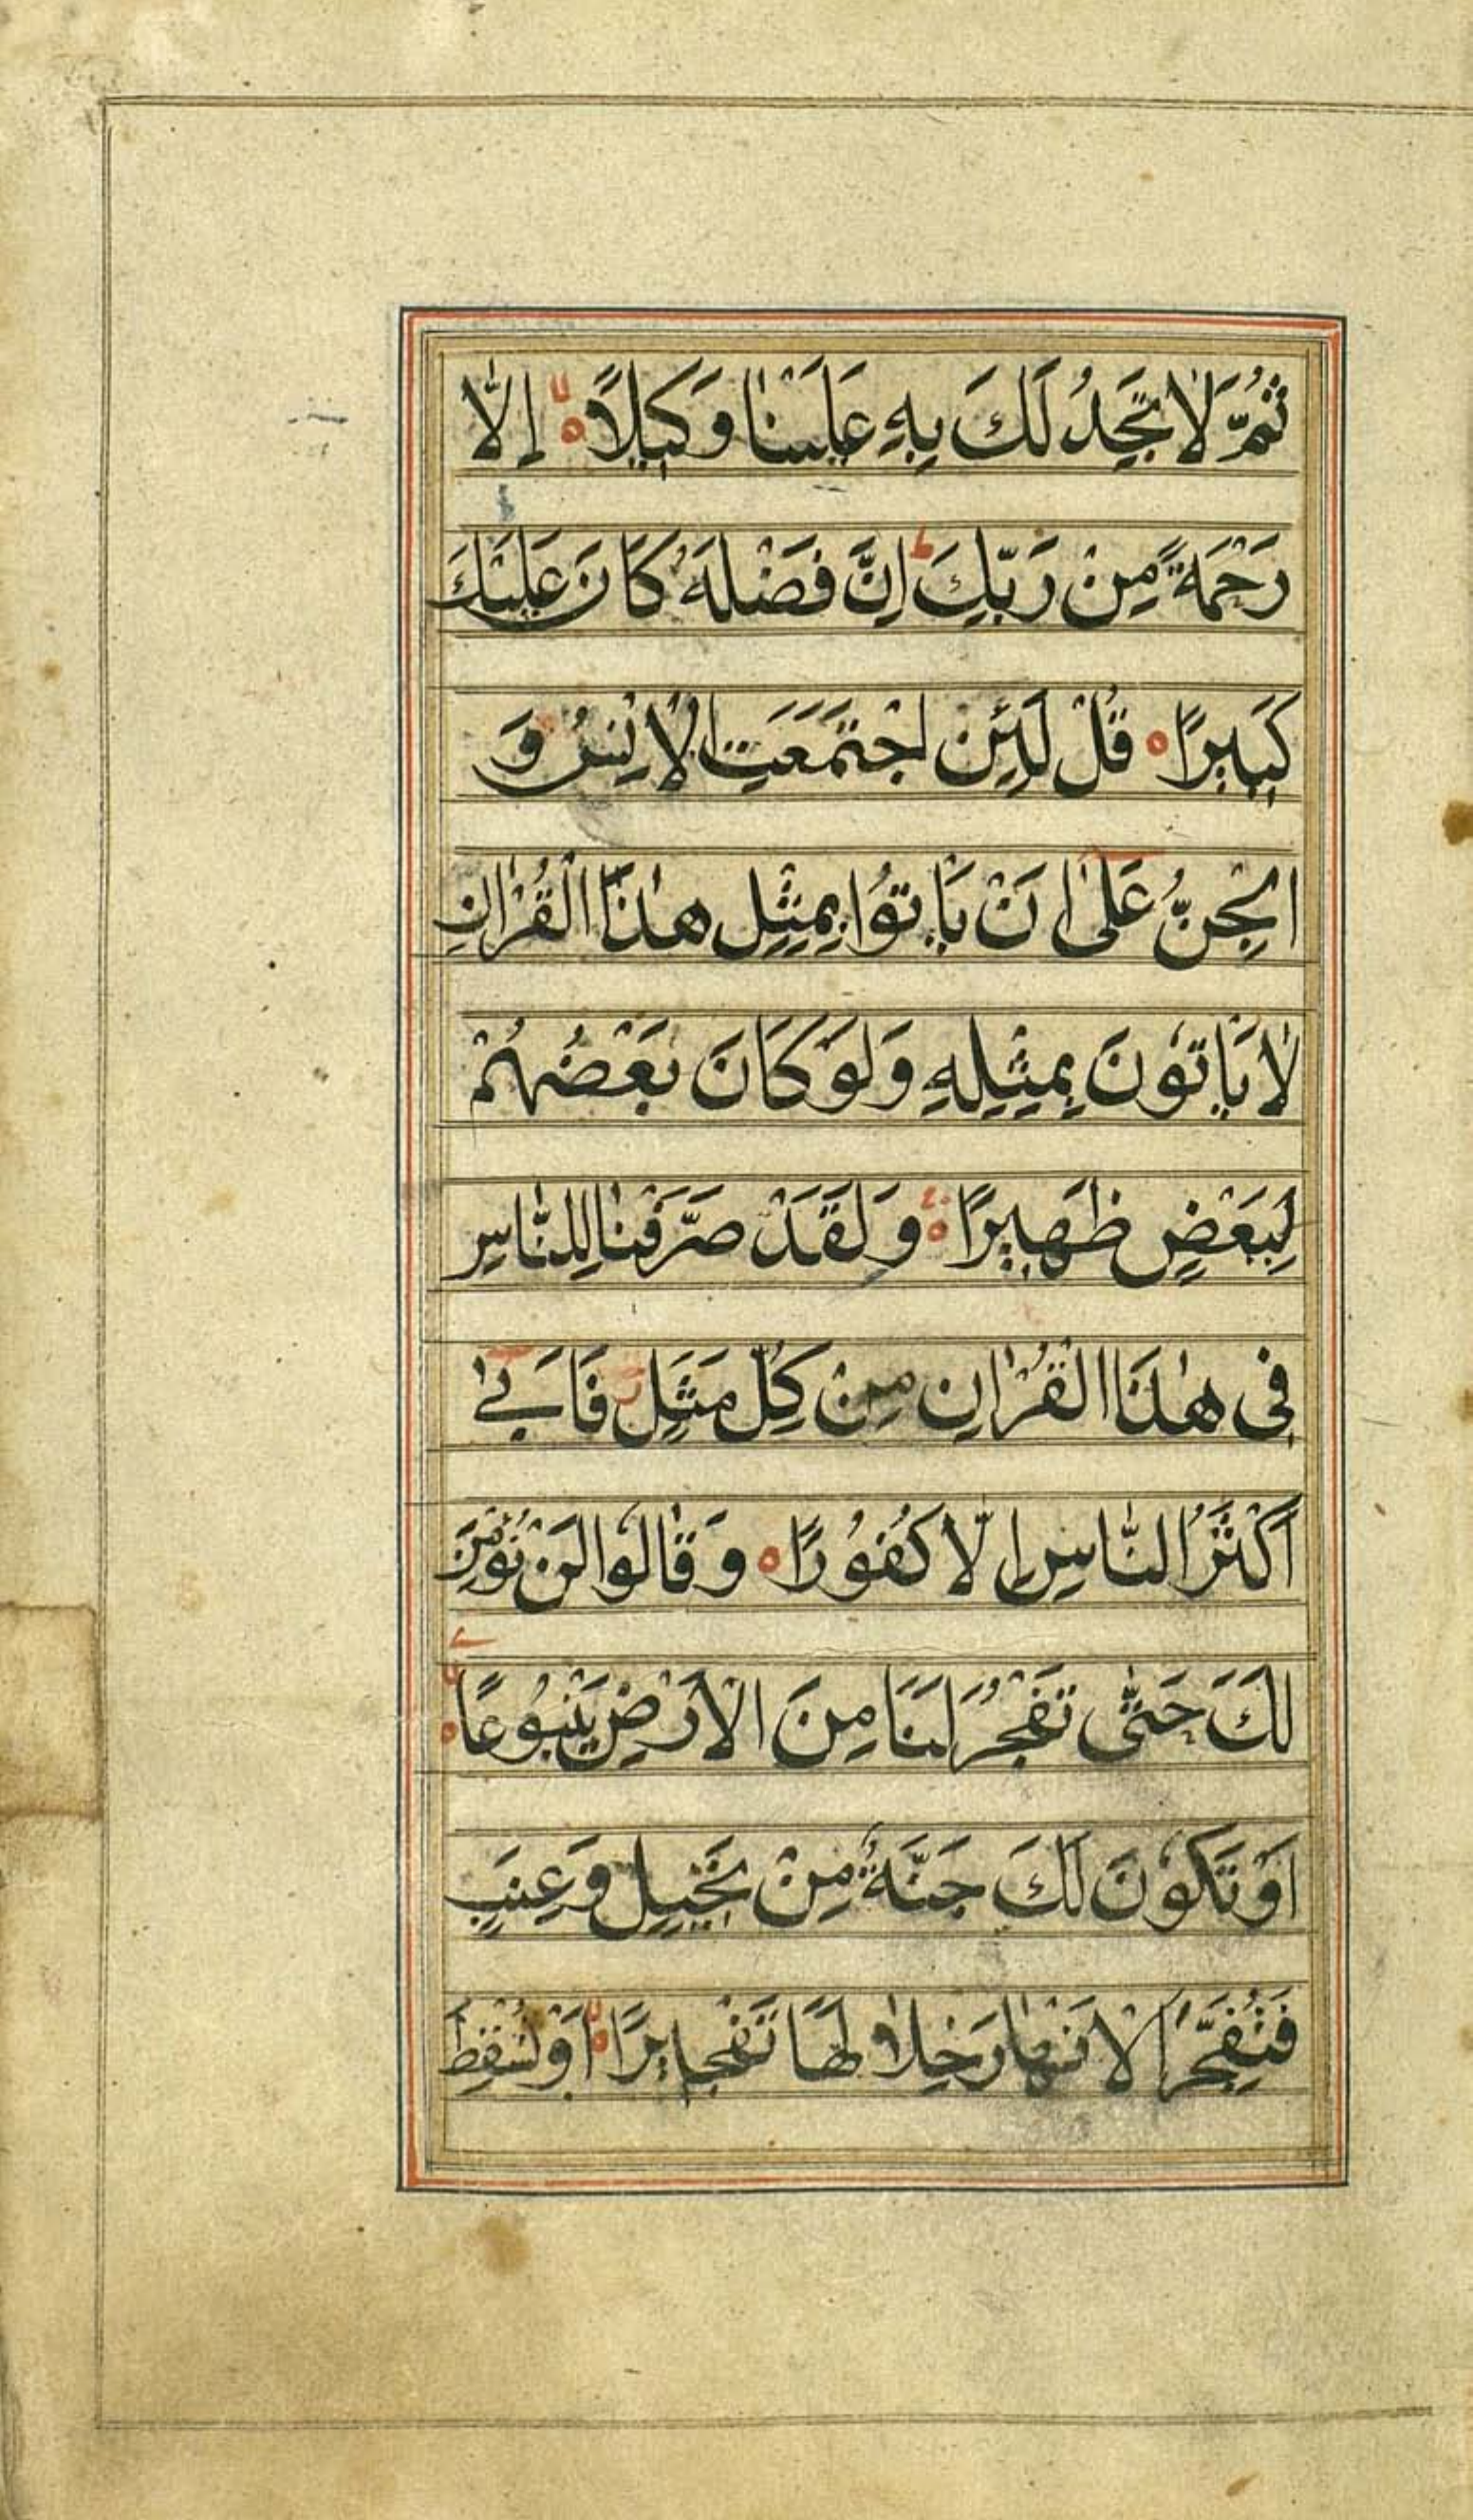 ثُمَّ لَا تَجِدُ لَكَ بِهٖ عَلَيْنَا وَكِيْلًا ۙ اِلَّا
رَحْمَةً مِنْ رَبِّكَ ؕ اِنَّ فَضْلَهٗ كَانَ عَلَيْكَ
كَبِيْرًا ۝ قُلْ لَئِنِ اجْتَمَعَتِ الْاِنْسُ وَ
الْجِنُّ عَلٰٓى اَنْ يَاْتُوْا بِمِثْلِ هٰذَا الْقُرْاٰنِ
لَا يَاْتُوْنَ بِمِثْلِهٖ وَلَوْ كَانَ بَعْضُهُمْ
لِبَعْضٍ ظَهِيْرًا ۝ وَلَقَدْ صَرَّفْنَا لِلنَّاسِ
فِى هٰذَا الْقُرْاٰنِ مِنْ كُلِّ مَثَلٍ ز فَاَبٰٓى
اَكْثَرُ النَّاسِ اِلَّا كُفُوْرًا ۝ وَقَالُوْا لَنْ نُؤْمِنَ
لَكَ حَتّٰى تَفْجُرَ لَنَا مِنَ الْاَرْضِ يَنْبُوْعًا ۙ
اَوْ تَكُوْنَ لَكَ جَنَّةٌ مِنْ نَخِيْلٍ وَعِنَبٍ
فَتُفَجِّرَ الْاَنْهَارَ خِلَالَهَا تَفْجِيْرًا ۙ اَوْ تُسْقِطَ